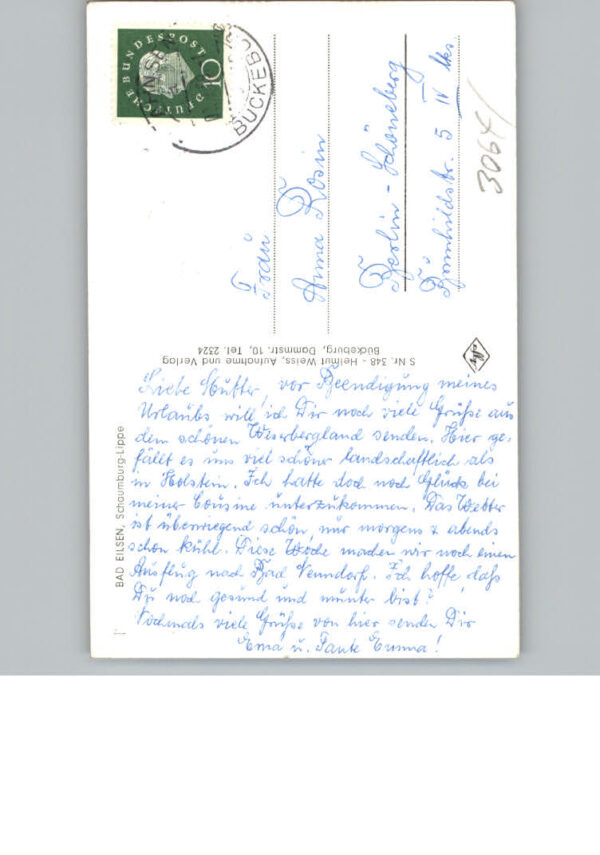 DEUTSCHE BUNDESPOST
10
BÜCKEBU
Frau
Anna Rosin
Berlin-Schöneberg
Str. 5 IV lks
3064/
S Nr. 348 - Helmut Weiss, Aufnahme und Verlag
Bückeburg, Dammstr. 10, Tel. 2324
BAD EILSEN, Schaumburg-Lippe
Liebe Mutter, vor Beendigung meines
Urlaubs will ich Dir noch viele Grüße aus
dem schönen Weserbergland senden. Hier ge-
fällt es uns viel schöner landschaftlich als
in Holstein. Ich hatte doch noch Glück bei
meiner Cousine unterzukommen. Das Wetter
ist überwiegend schön, nur morgens & abends
schon kühl. Diese Woche machen wir noch einen
Ausflug nach Bad Nenndorf. Ich hoffe, daß
Du noch gesund und munter bist?
Nochmals viele Grüße von hier senden Dir
Erna u. Tante Emma!